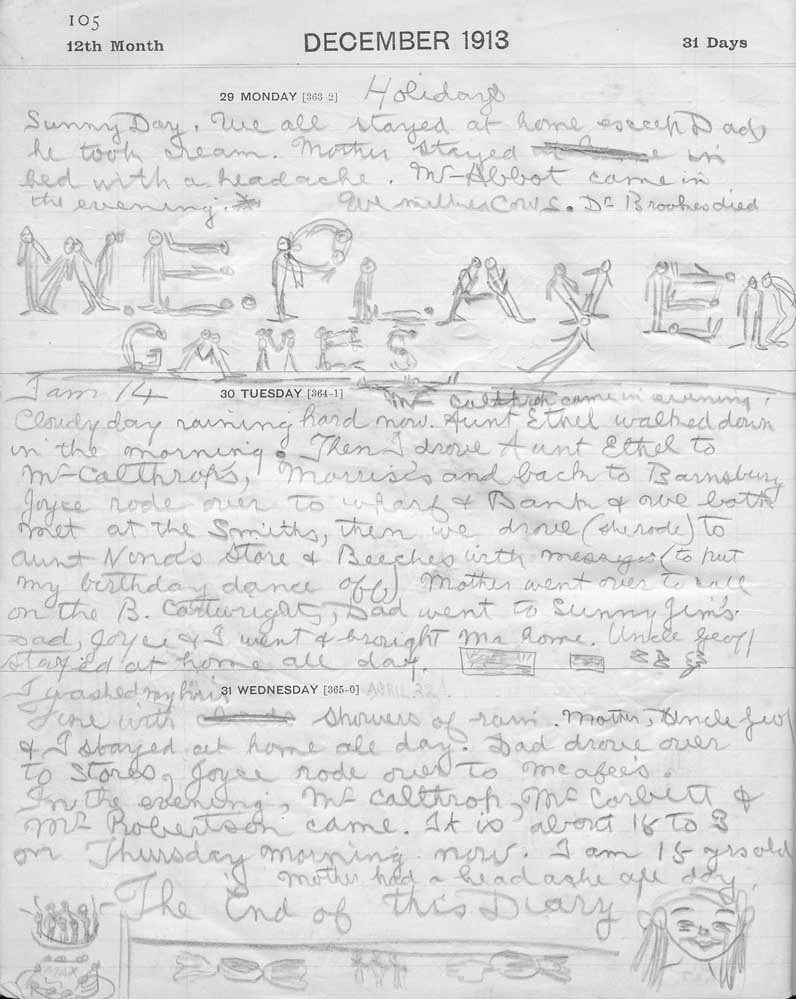 105
12th Month DECEMBER 1913 31 Days
29 MONDAY [363-2] Holidays
Sunny Day. We all stayed at home except Dad,
he took cream. Mother stayed in
bed with a headache. Mr Abbot came in
the evening. We milked cows. Dr Brookes died
WE. PLAYED
GAMES
I am 14 30 TUESDAY [364-1] Mr Calthrop came in evening.
Cloudy day raining hard now. Aunt Ethel walked down
in the morning. Then I drove Aunt Ethel to
Mr Calthrop's, Morris's and back to Barnsbury
Joyce rode over to wharf & Bank & we both
met at the Smiths, then we drove (she rode) to
Aunt Nona's Store & Beeches with messages (to put
my birthday dance off) Mother went over to call
on the B. Cartwrights, Dad went to Sunny Jim's.
Dad, Joyce & I went & brought Ma home. Uncle Geoff
stay'd at home all day.
I washed my hair 31 WEDNESDAY [365-0] APRIL 22
Fine with showers of rain. Mother, Uncle Geoff
& I stayed at home all day. Dad drove over
to Stores, Joyce rode over to Mcafee's.
In the evening, Mr Calthrop, Mr Corbett &
Mr Robertson came. It is about 15 to 3
on Thursday morning now. I am 15 yrs old
Mother had a headache all day.
The End of this Diary